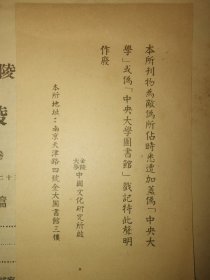 本所刊物為敵偽所佔時悉遭加蓋偽「中央大
學」或偽「中央大學圖書館」戳記特此聲明
作廢
金陵大學中國文化研究所啟
本所地址：南京天津路四號金大圖書館三樓
陵
卷
篇